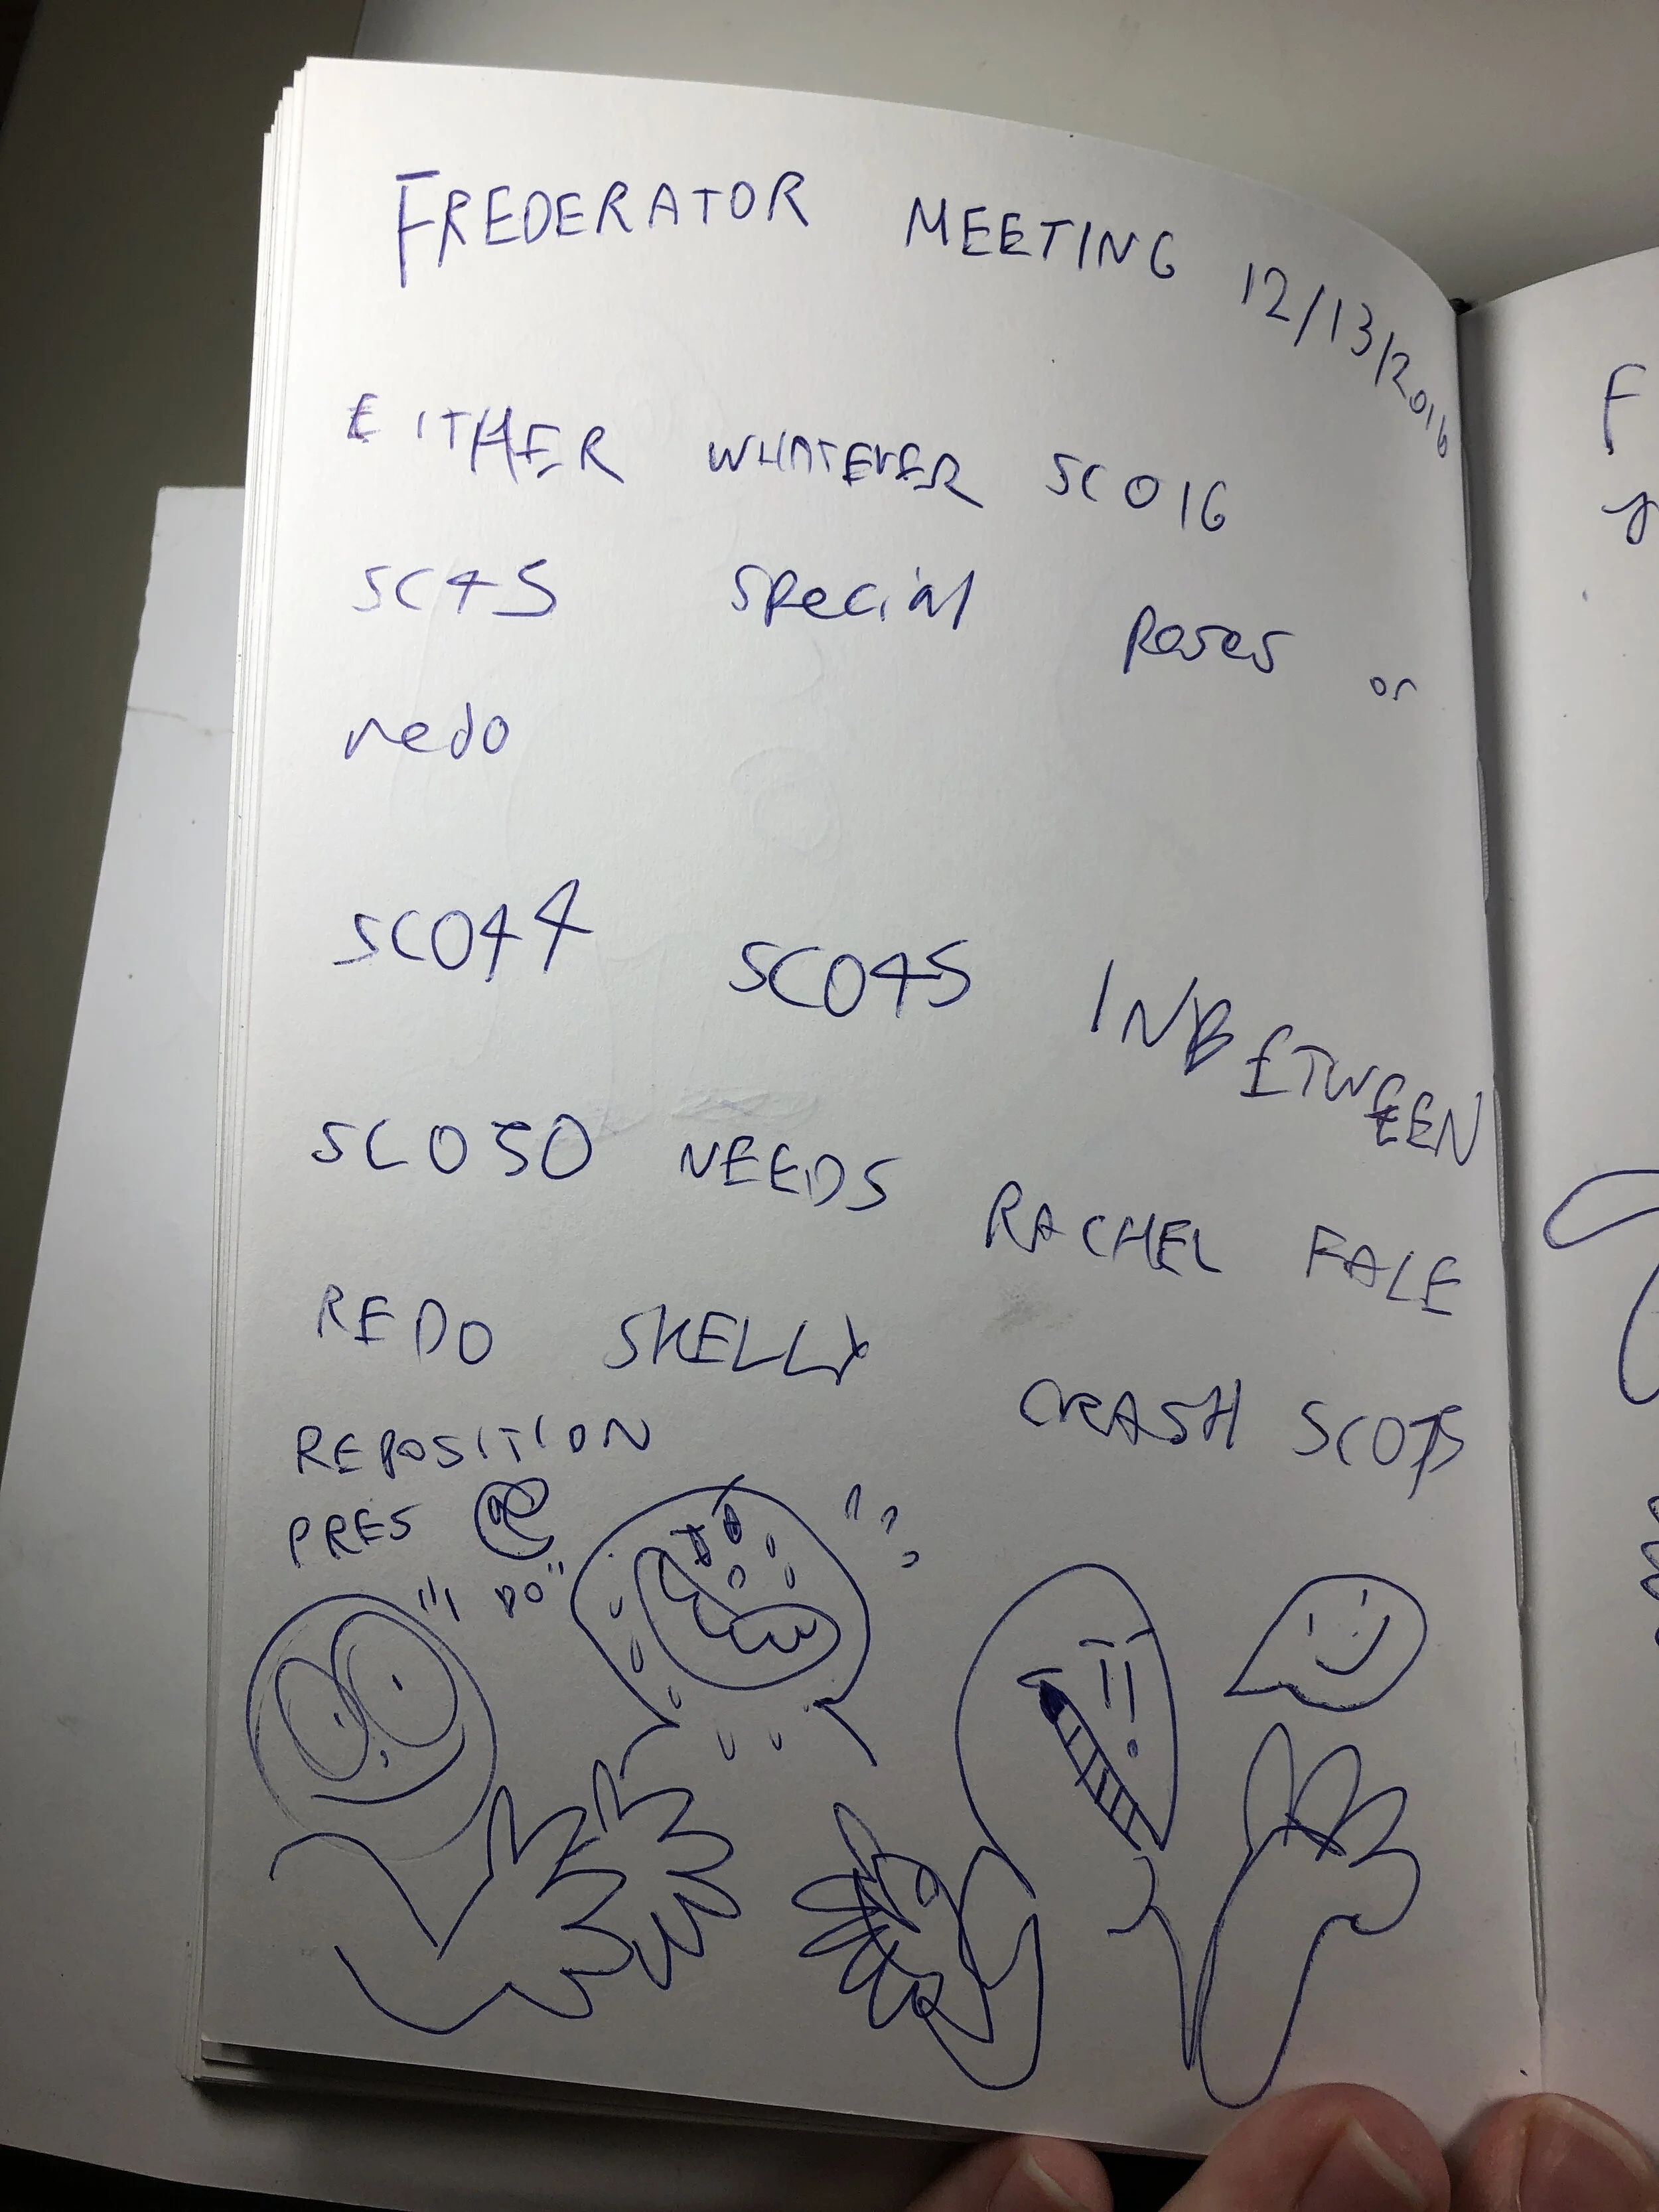 FREDERATOR MEETING 12/13/2016
EITHER WHATEVER SC016
SC45 special Poses or
redo
SC044 SC045 INBETWEEN
SC050 NEEDS RACHEL FALE
REDO SKELLY CRASH SC075
REPOSITION
PRES
"I DO"
F